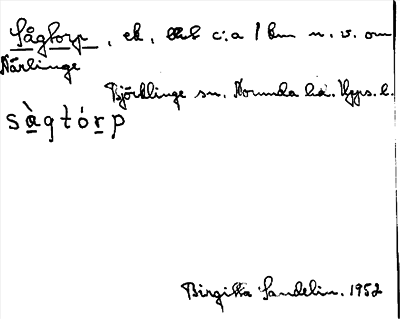 Sågtorp, ek, c:a 1 km n. v. om
Närlinge
Björklinge sn. Norunda hd. Upps. l.
sàgtórp
Birgitta Sandelin. 1952